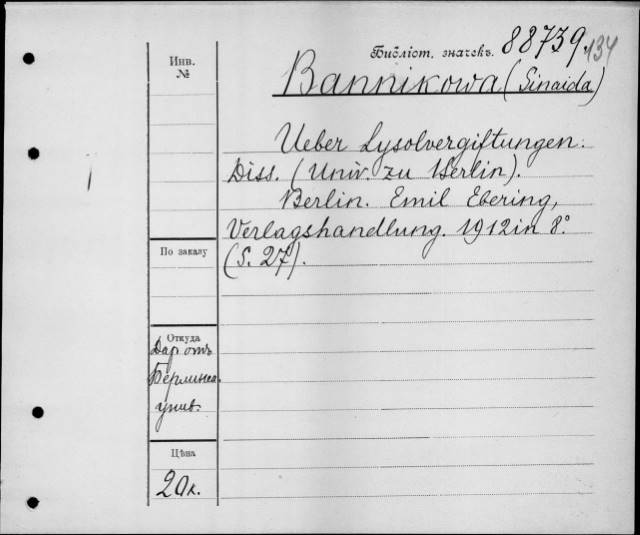 Библіот. значекъ. 88739.
134
Инв.
№
Bannikowa (Sinaida)
Ueber Lysolvergiftungen.
Diss. (Univ. zu Berlin).
Berlin. Emil Ebering,
Verlagshandlung. 1912 in 8º
(S. 27).
По заказу
Откуда
Дар отъ
Берлинск.
унив.
Цѣна
20к.